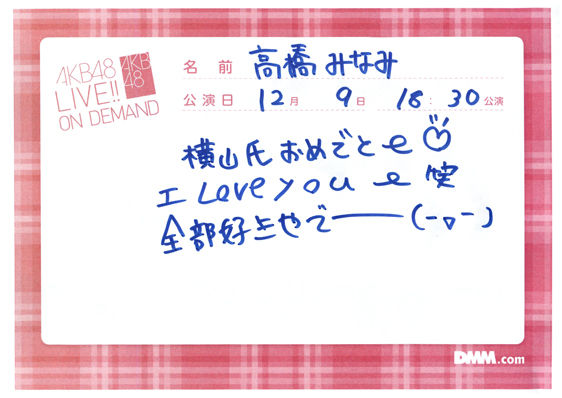 AKB48
LIVE!!
ON DEMAND
AKB
48
名前 高橋みなみ
公演日 12月 9日 18:30公演
横山氏おめでとe♡
I Love you e 笑
全部好きやで――(-▽-)
DMM.com